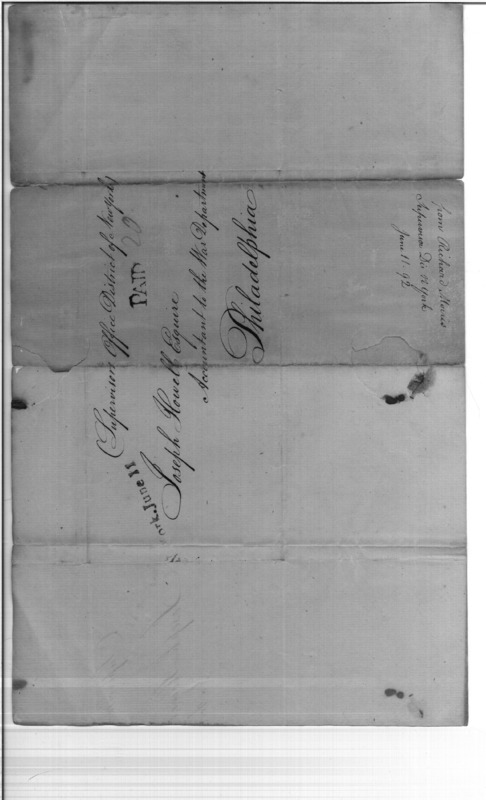 (Supervisors Office District of Newyork)
PAID 20
ork. June 11
Joseph Howell Esquire
Accountant to the War Department
Philadelphia
from Richard Morris
Supervisor Dis NYork
June 11. 92